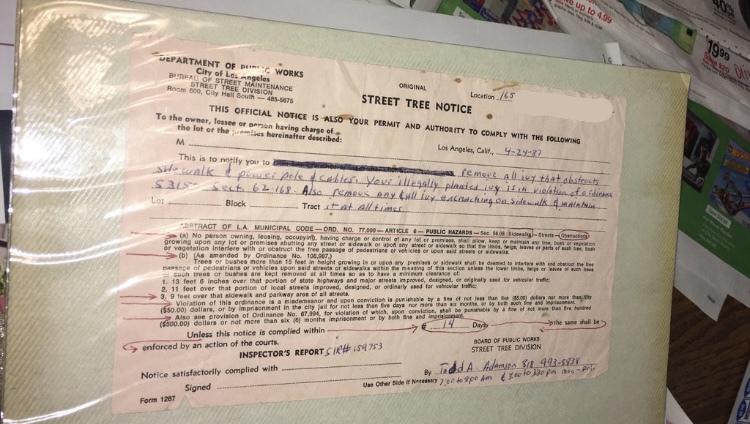 DEPARTMENT OF PUBLIC WORKS
City of Los Angeles
BUREAU OF STREET MAINTENANCE
STREET TREE DIVISION
Room 600, City Hall South — 485-5675
ORIGINAL
Location 165
STREET TREE NOTICE
THIS OFFICIAL NOTICE IS ALSO YOUR PERMIT AND AUTHORITY TO COMPLY WITH THE FOLLOWING
To the owner, lessee or person having charge of
the lot or the premises hereinafter described:
M
Los Angeles, Calif., 4-24-87
This is to notify you to remove all ivy that obstructs
sidewalk & power pole & cables. Your illegally planted ivy is in violation of ordinance
Sect 62.168. Also remove any & all ivy encroaching on sidewalk & maintain
Lot Block Tract it at all times
ABSTRACT OF L.A. MUNICIPAL CODE — ORD. 77,000 — ARTICLE 6 — PUBLIC HAZARDS — Sec. Sidewalks — Streets — Obstructions
(a) No person owning, leasing, occupying, having charge or control of any lot or premises, shall allow, keep or maintain any tree, bush or vegetation
growing upon any lot or premises abutting any street or sidewalk or upon any street or sidewalk so that the limbs, twigs, leaves or parts of such tree, bush
or vegetation interfere with or obstruct the free passage of pedestrians or vehicles or upon said streets or sidewalks.
(b) (As amended by Ordinance No. 106,967.)
Trees or bushes more than 15 feet in height growing in or upon any premises or sidewalk shall be deemed to interfere with and obstruct the free
passage of pedestrians or vehicles upon said streets or sidewalks within the meaning of this section unless the lower limbs, twigs or leaves of such
such trees or bushes are kept removed at all times so as to have a minimum clearance of:
1. 13 feet 6 inches over that portion of state highways and major streets improved, designed, or originally used for vehicular traffic;
2. 11 feet over that portion of local streets improved, designed, or used for vehicular traffic;
3. 9 feet over that sidewalk and parkway area of all streets.
Violation of this ordinance is a misdemeanor and upon conviction is punishable by a fine of not less than five ($5.00) dollars nor more than fifty
($50.00) dollars, or by imprisonment in the city jail for not less than five days nor more than six months, or by both such fine and imprisonment.
Also see provision of Ordinance No. 67,994, for violation of which, upon conviction, shall be punishable by a fine of not more than five hundred
($500.00) dollars or not more than six (6) months imprisonment or by both fine and imprisonment.
Unless this notice is complied within 14 Days the same shall be
enforced by an action of the courts.
BOARD OF PUBLIC WORKS
STREET TREE DIVISION
INSPECTOR'S REPORT SIR# 159753
Notice satisfactorily complied with
By Todd A Adamson 818 993-8838
Signed
Use Other Side if Necessary 7:00 to 8:00 Am & 3:00 to 3:30 pm mon - fri
Form 1267
up to 4.99
40%
1999